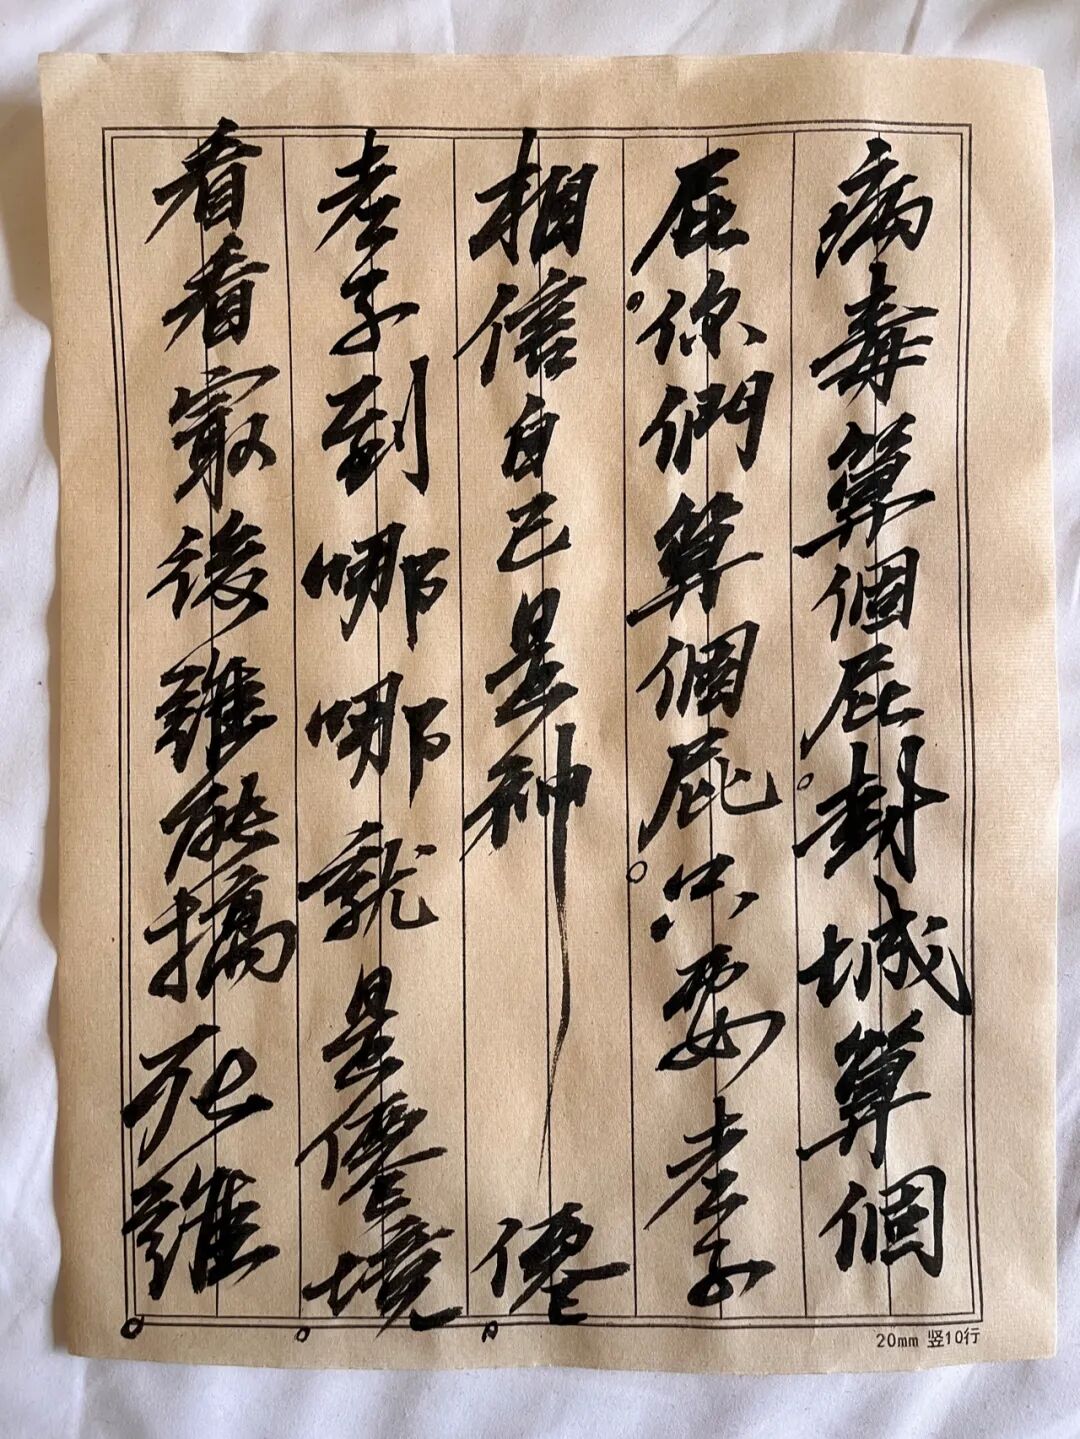 病毒算個屁。封城算個
屁。你們算個屁。只要老子
相信自己是神仙。
老子到哪哪就是僊境。
看看最後誰能搞死誰。
20mm 竖10行